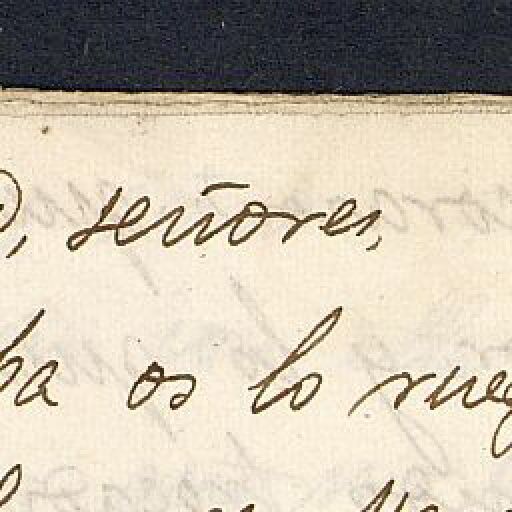 , señores,
ba os lo rueg